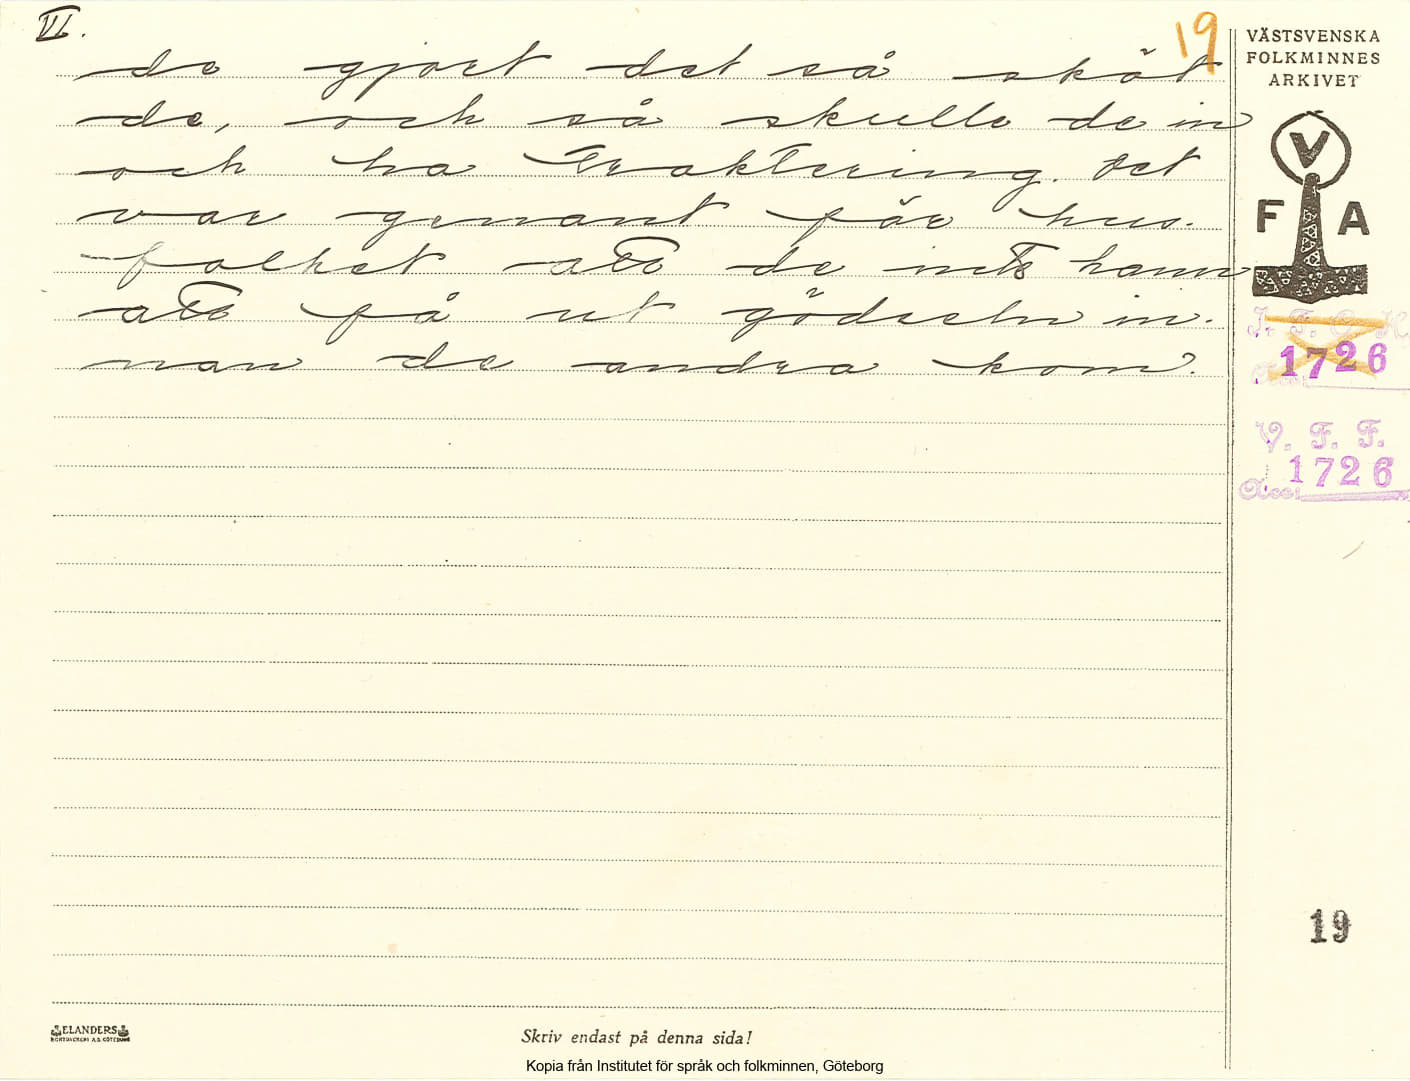 VI.
19
de gjort det så sköt
de, och så skulle de in
och ha traktering. Det
var genant för hus-
folket att de inte hann
att få ut gödseln in-
nan de andra kom.
VÄSTSVENSKA
FOLKMINNES
ARKIVET
V
F A
I. F. G. H.
1726
V. F. F.
1726
Acc:
19
ELANDERS
BOKTRYCKERI A.B. GÖTEBORG
Skriv endast på denna sida!
Kopia från Institutet för språk och folkminnen, Göteborg